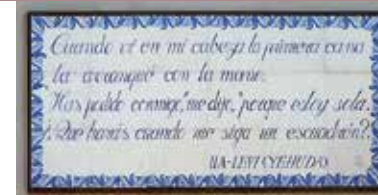 Cuando vi en mi cabeza la primera cana
la arranqué con la mano.
"Has podido conmigo," me dijo, "porque estoy sola.
¿Qué harás cuando me siga un escuadrón?
HA-LEVI (YEHUDA)